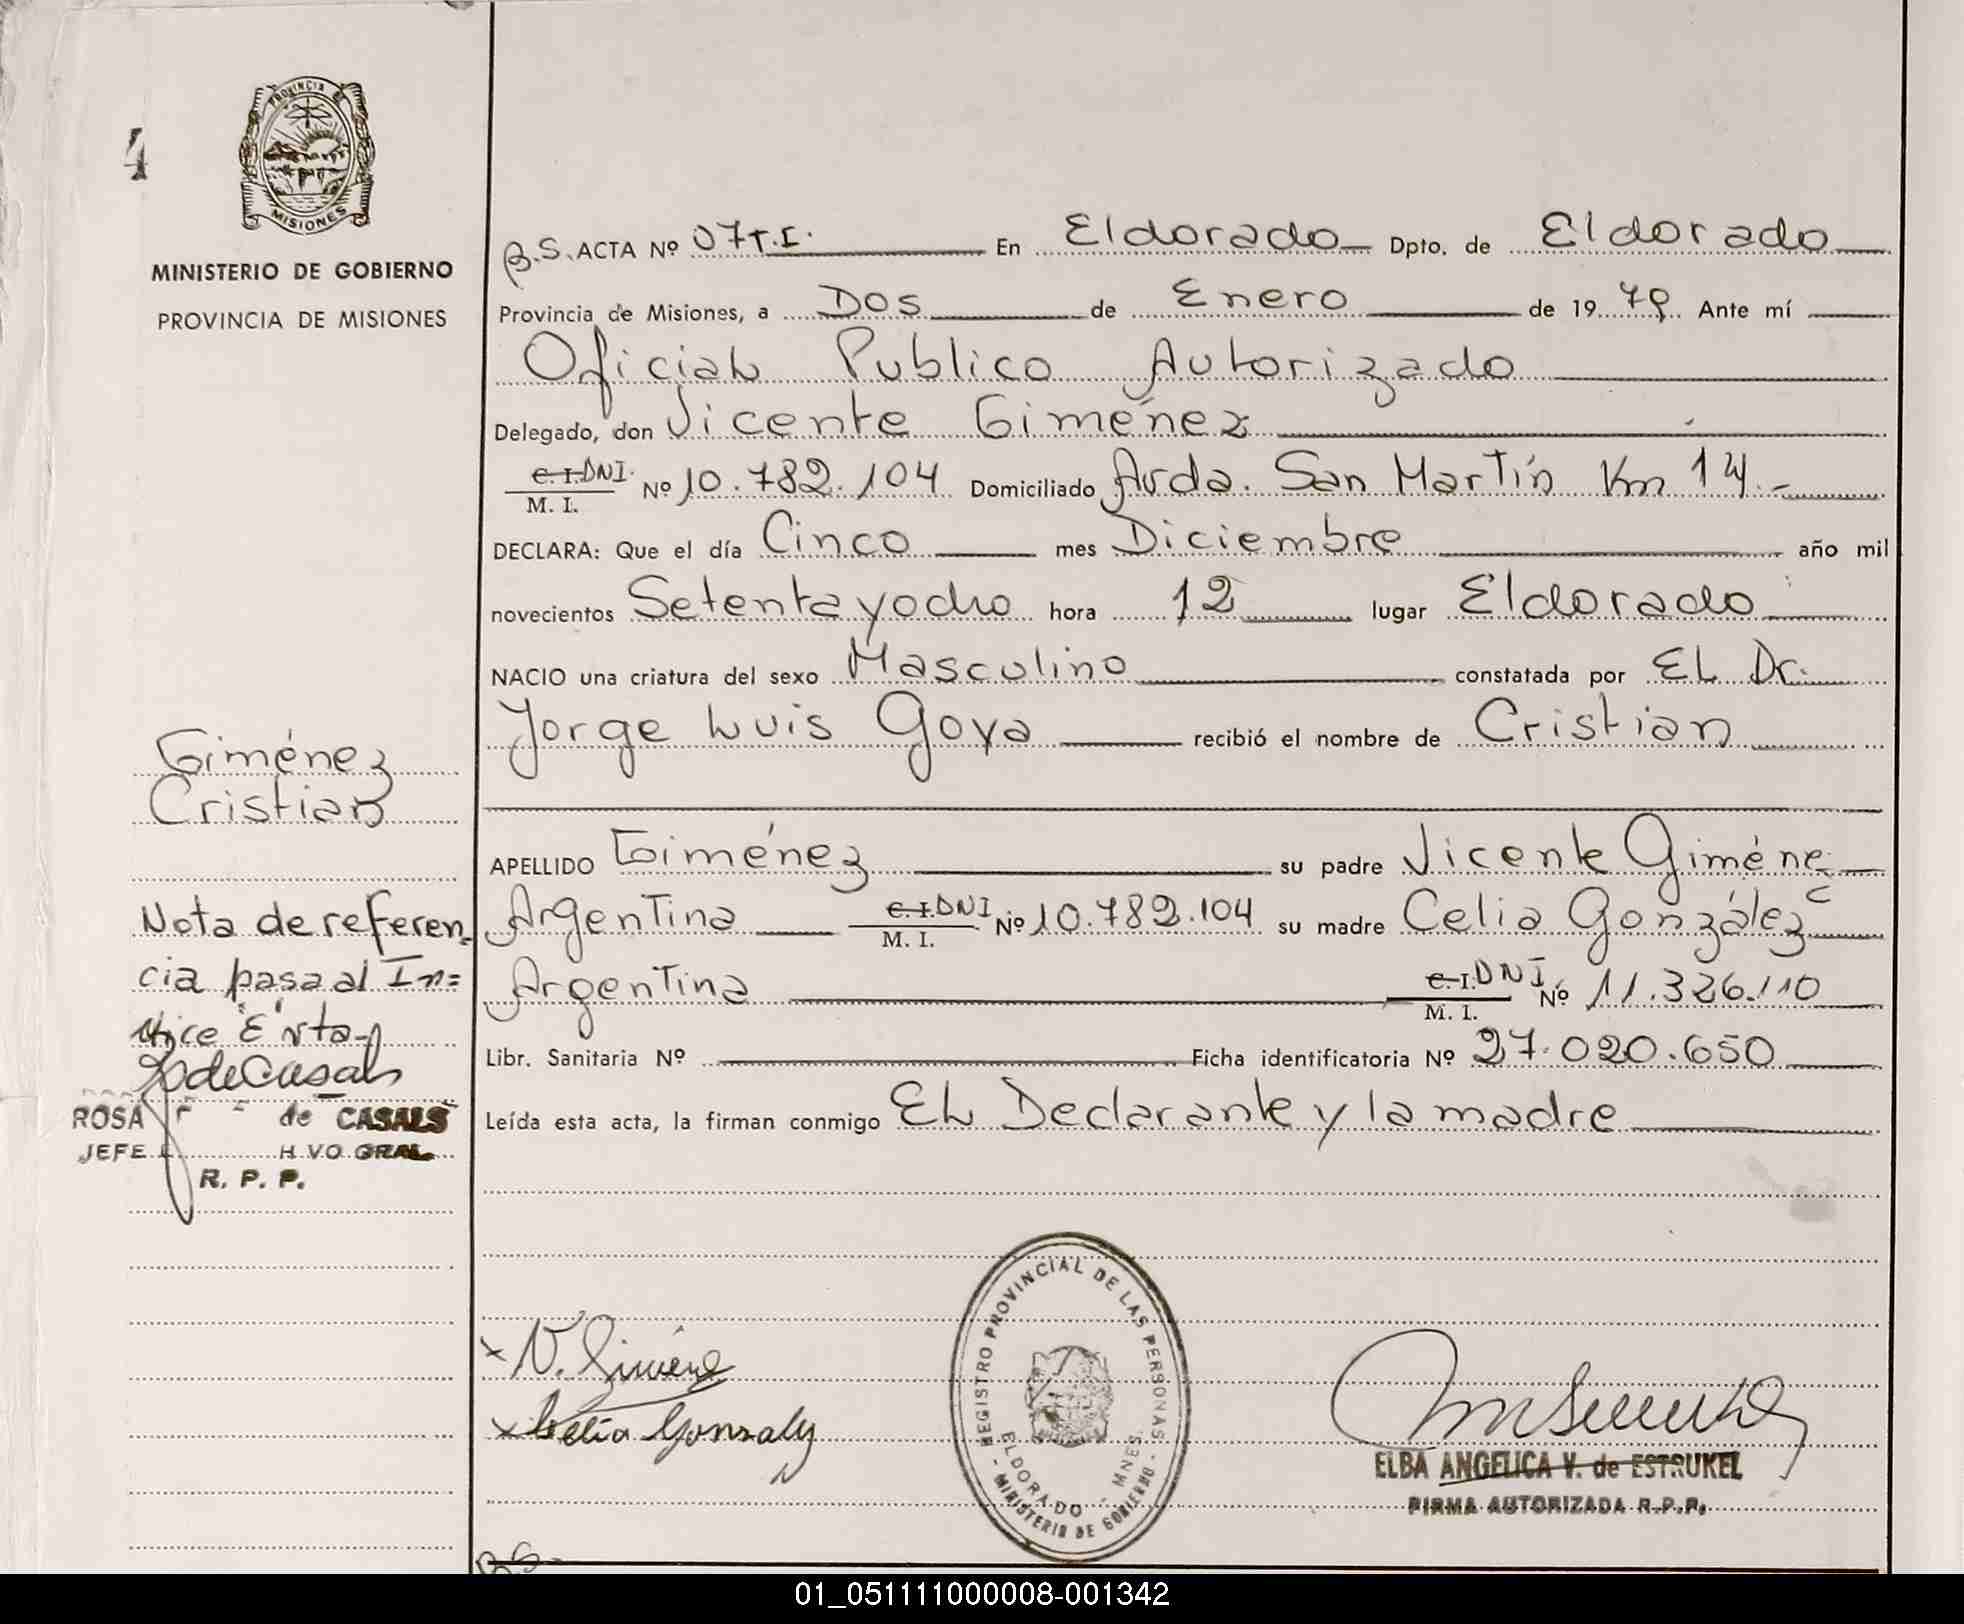 4
PROVINCIA DE
MISIONES
MINISTERIO DE GOBIERNO
PROVINCIA DE MISIONES
B.S. ACTA Nº 07 T.I. En Eldorado Dpto. de Eldorado
Provincia de Misiones, a Dos de Enero de 1979 Ante mí
Oficial Publico Autorizado
Delegado, don Vicente Giménez
C.I. DNI.
M. I. Nº 10.782.104 Domiciliado Avda. San Martín Km 14.-
DECLARA: Que el día Cinco mes Diciembre año mil
novecientos Setenta y ocho hora 12 lugar Eldorado
NACIO una criatura del sexo Masculino constatada por El Dr.
Jorge Luis Goya recibió el nombre de Cristian
APELLIDO Giménez su padre Vicente Giménez
Argentina C.I. DNI M. I. Nº 10.782.104 su madre Celia González
Argentina C.I. DNI M. I. Nº 11.326.110
Libr. Sanitaria Nº Ficha identificatoria Nº 27.020.650
Leída esta acta, la firman conmigo El Declarante y la madre
Giménez
Cristian
Nota de referen
cia pasa al In=
dice "E" vta-
de Casals
ROSA de CASALS
JEFE
R. P. P.
x V. Giménez
x Celia Gonzalez
REGISTRO PROVINCIAL DE LAS PERSONAS
ELDORADO - MNES.
- MINISTERIO DE GOBIERNO -
ELBA ANGELICA V. de ESTRUKEL
FIRMA AUTORIZADA R.P.P.
B.S.
01_051111000008-001342